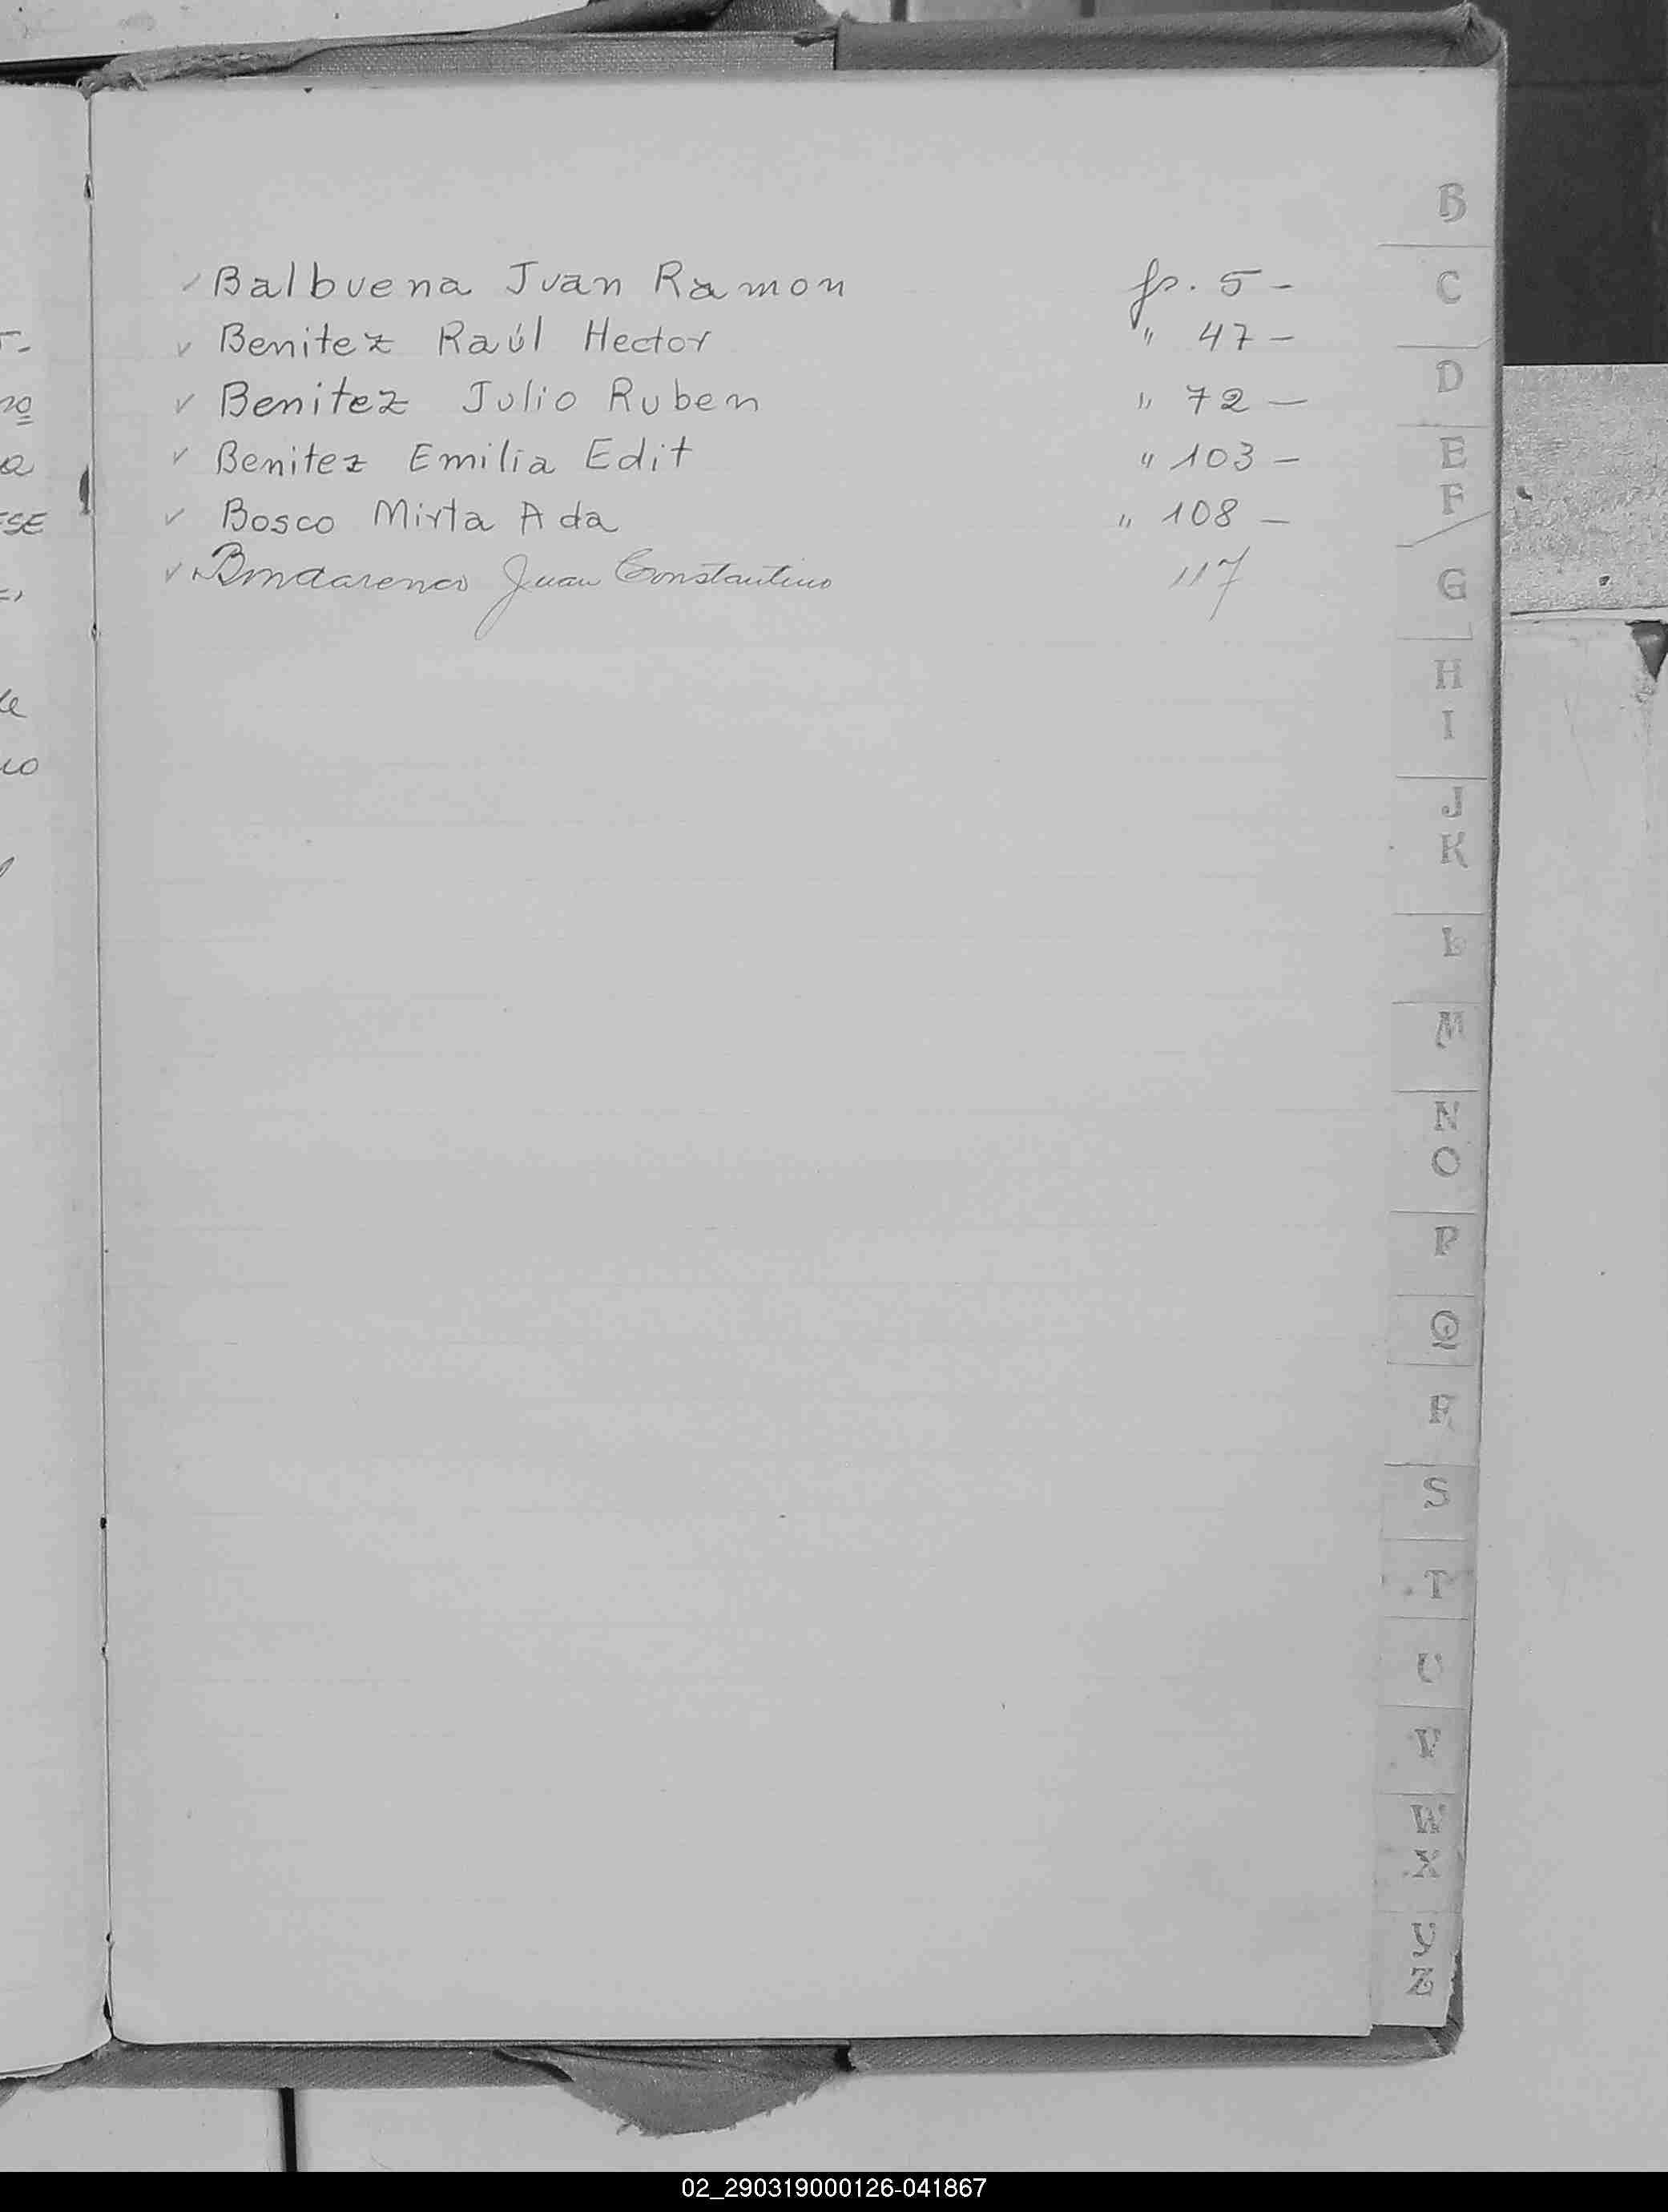 ✓ Balbuena Juan Ramon fs. 5 -
✓ Benitez Raúl Hector " 47 -
✓ Benitez Julio Ruben " 72 -
✓ Benitez Emilia Edit " 103 -
✓ Bosco Mirta Ada " 108 -
✓ Bondarenco Juan Constantino 117
B
C
D
E
F
G
H
I
J
K
L
M
N
O
P
Q
R
S
T
U
V
W
X
Y
Z
02_290319000126-041867